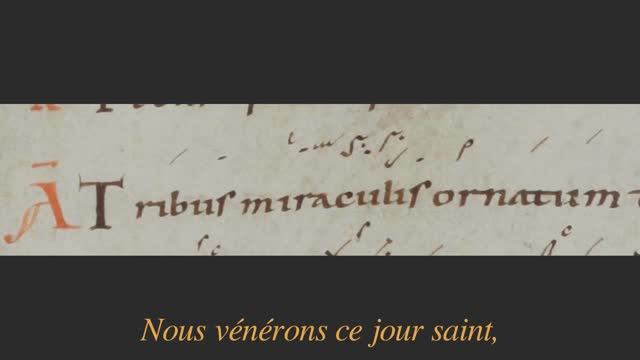 A Tribus miraculis ornatum
Nous vénérons ce jour saint,